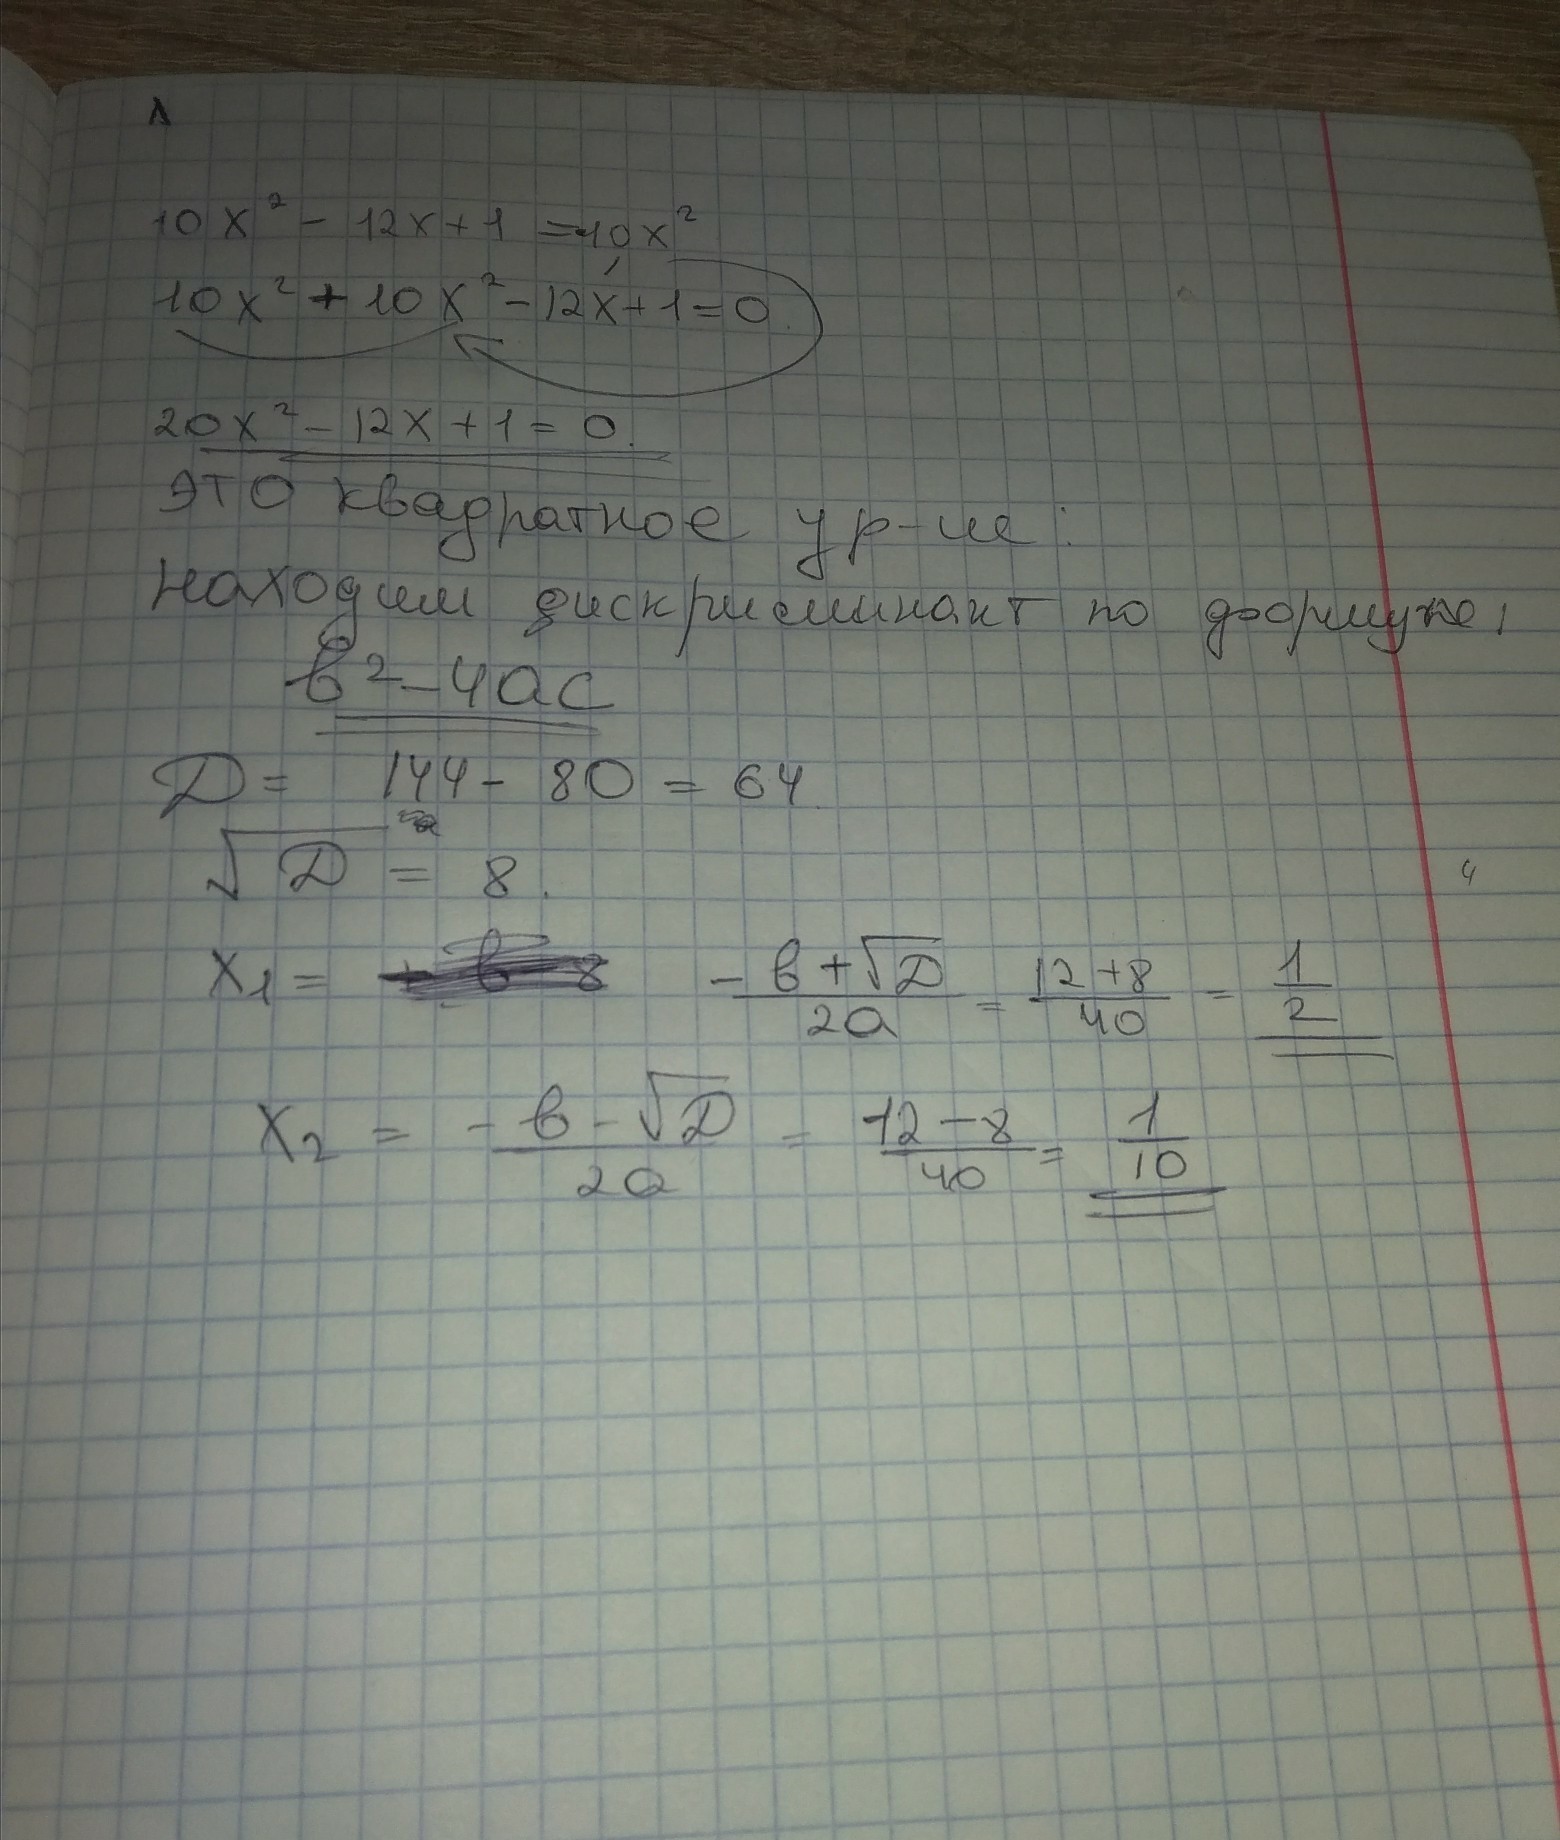 10x² - 12x + 1 = -10x²
10x² + 10x² - 12x + 1 = 0.
20x² - 12x + 1 = 0.
это квадратное ур-ие:
находим дискриминант по формуле,
b² - 4ac
D = 144 - 80 = 64.
√D = 8.
x₁ = -b + √D / 2a = 12 + 8 / 40 = 1/2
x₂ = -b - √D / 2a = 12 - 8 / 40 = 1/10